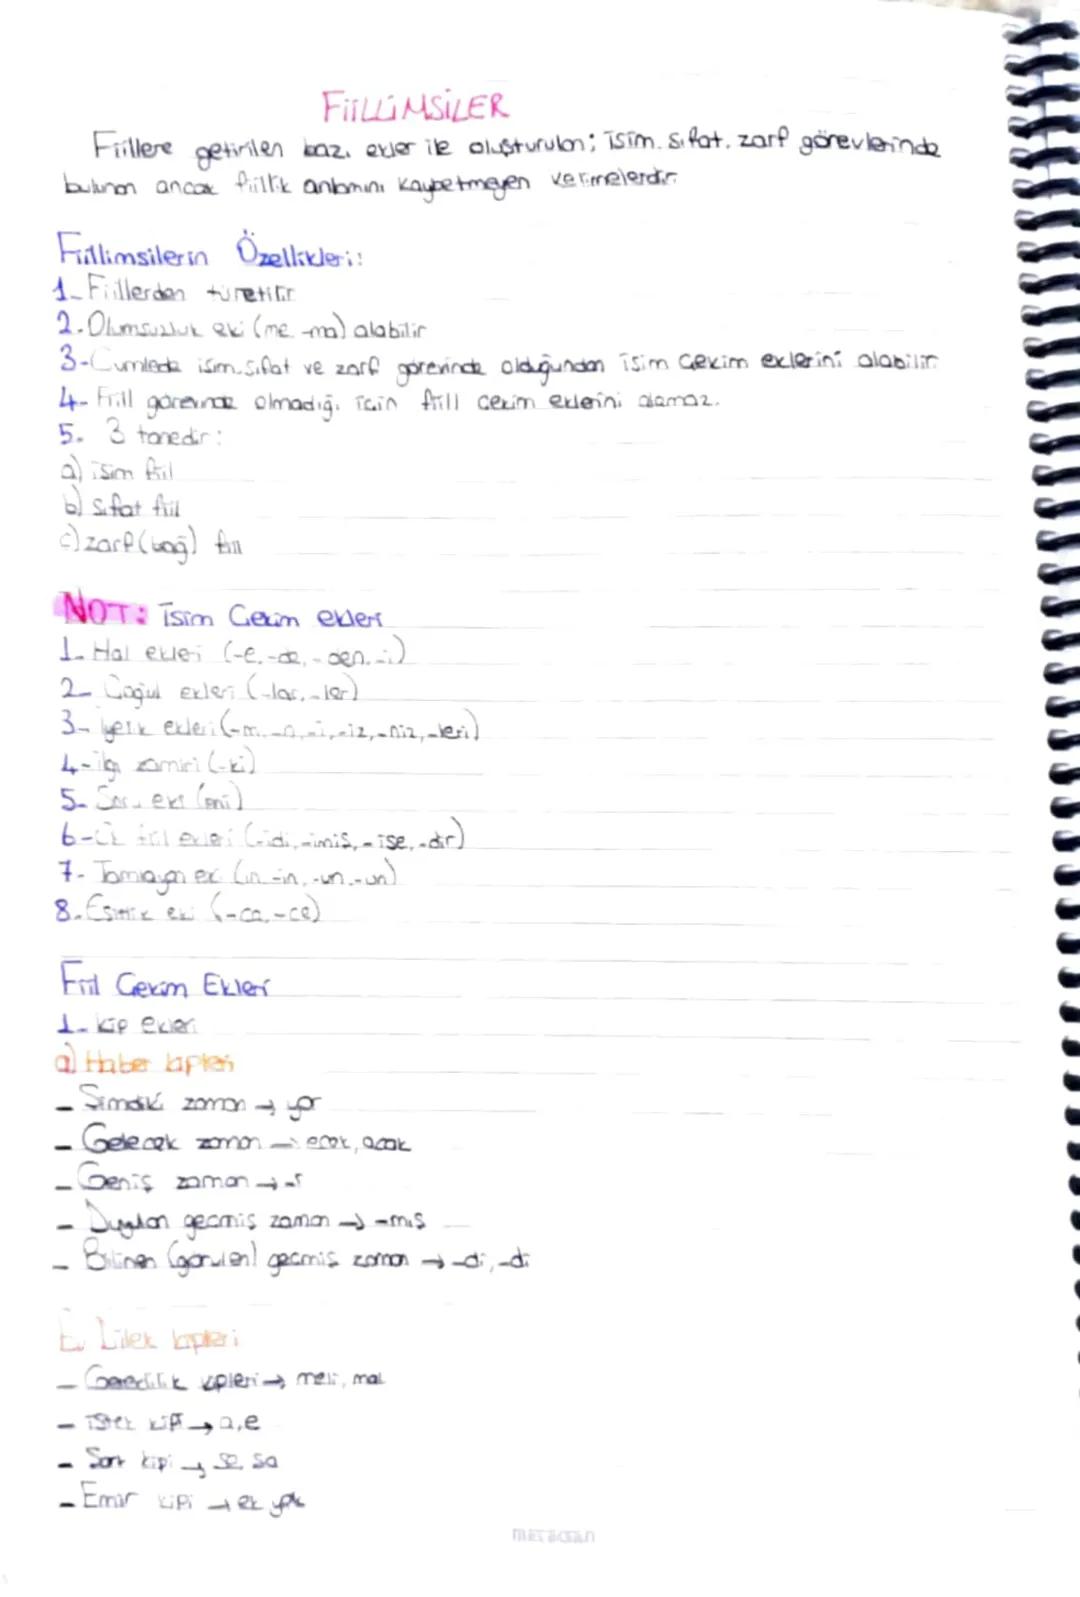 FİİLLİMSİLER
Fiillere getirilen bazı ekler ile oluşturulan; isim, sıfat, zarf görevlerinde
bulunan ancak fiillik anlamını kaybetmeyen kelimelerdir.
Fiillimsilerin Özellikleri:
1- Fiillerden türetilir
2. Olumsuzluk eki (me -ma) alabilir
3- Cümlede isim, sıfat ve zarf görevinde olduğundan isim çekim eklerini alabilir.
4- Fiill görevinde olmadığı için fiill çekim eklerini alamaz.
5. 3 tanedir:
a) isim fiil
b) sıfat fiil
c) zarf (bağ) fiil
NOT: İsim Çekim ekleri
1- Hal ekleri (-e, -de, -den, -i)
2- Çoğul ekleri (-lar, -ler)
3- İyelik ekleri (-m, -n, -i, -iz, -niz, -leri)
4- ilgi zamiri (-ki)
5- Soru eki (mi)
6- Ek fiil ekleri (-idi, -imiş, -ise, -dir)
7- Tamlayan ek (ın -in, -un, -ün)
8. Eşitlik eki (-ca, -ce)
Fiil Çekim Ekleri
1- kip ekleri
a) Haber kipleri
- Şimdiki zaman → yor
- Gelecek zaman → ecek, acak
- Geniş zaman → -r
- Duyulan geçmiş zaman → -mış
- Bilinen (görülen) geçmiş zaman → -di, -dı
Dilek kipleri
- Gereklilik kipleri → meli, mal
- istek kipi → a, e
- Şart kipi → se, sa
- Emir kipi → ek yok